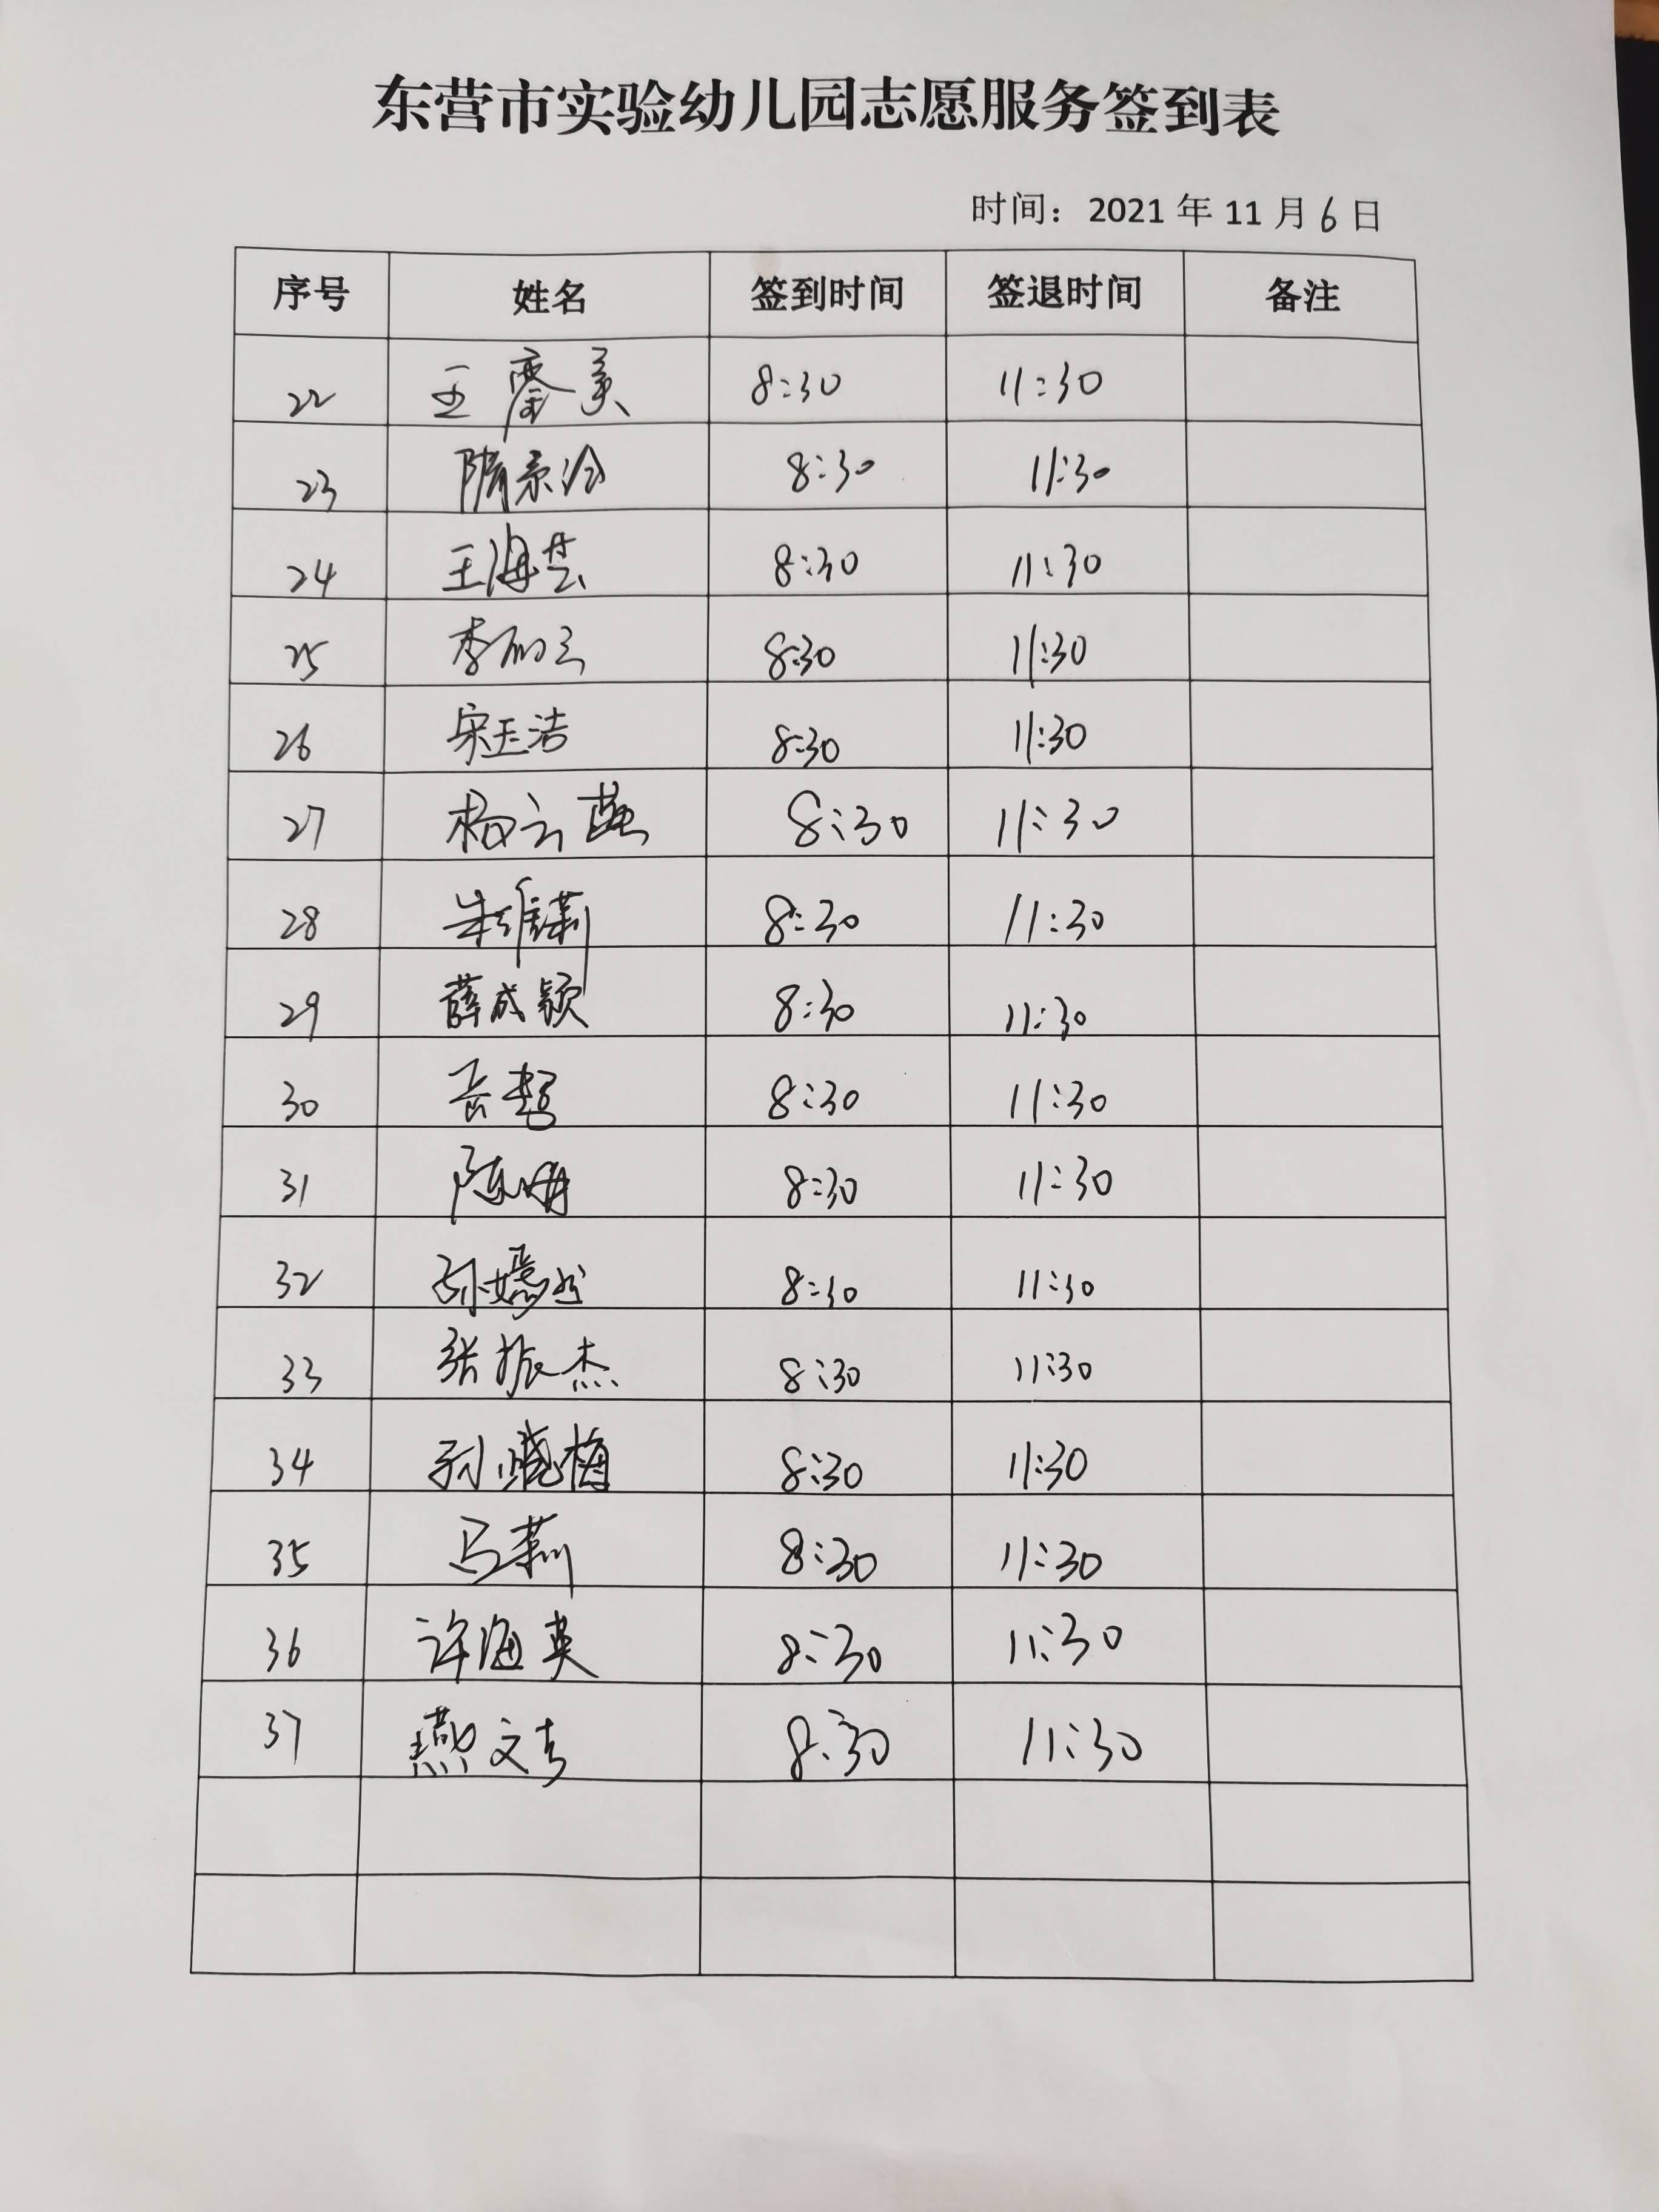 东营市实验幼儿园志愿服务签到表
时间：2021年11月6日
序号 姓名 签到时间 签退时间 备注
22 王 美 8:30 11:30
23 隋景 8:30 11:30
24 王海芸 8:30 11:30
25 李 8:30 11:30
26 宋玉洁 8:30 11:30
27 杨云燕 8:30 11:30
28 朱维莉 8:30 11:30
29 薛成颖 8:30 11:30
30 8:30 11:30
31 陈娟 8:30 11:30
32 孙嫣 8:30 11:30
33 张振杰 8:30 11:30
34 孙晓梅 8:30 11:30
35 马莉 8:30 11:30
36 许海英 8:30 11:30
37 燕文 8:30 11:30